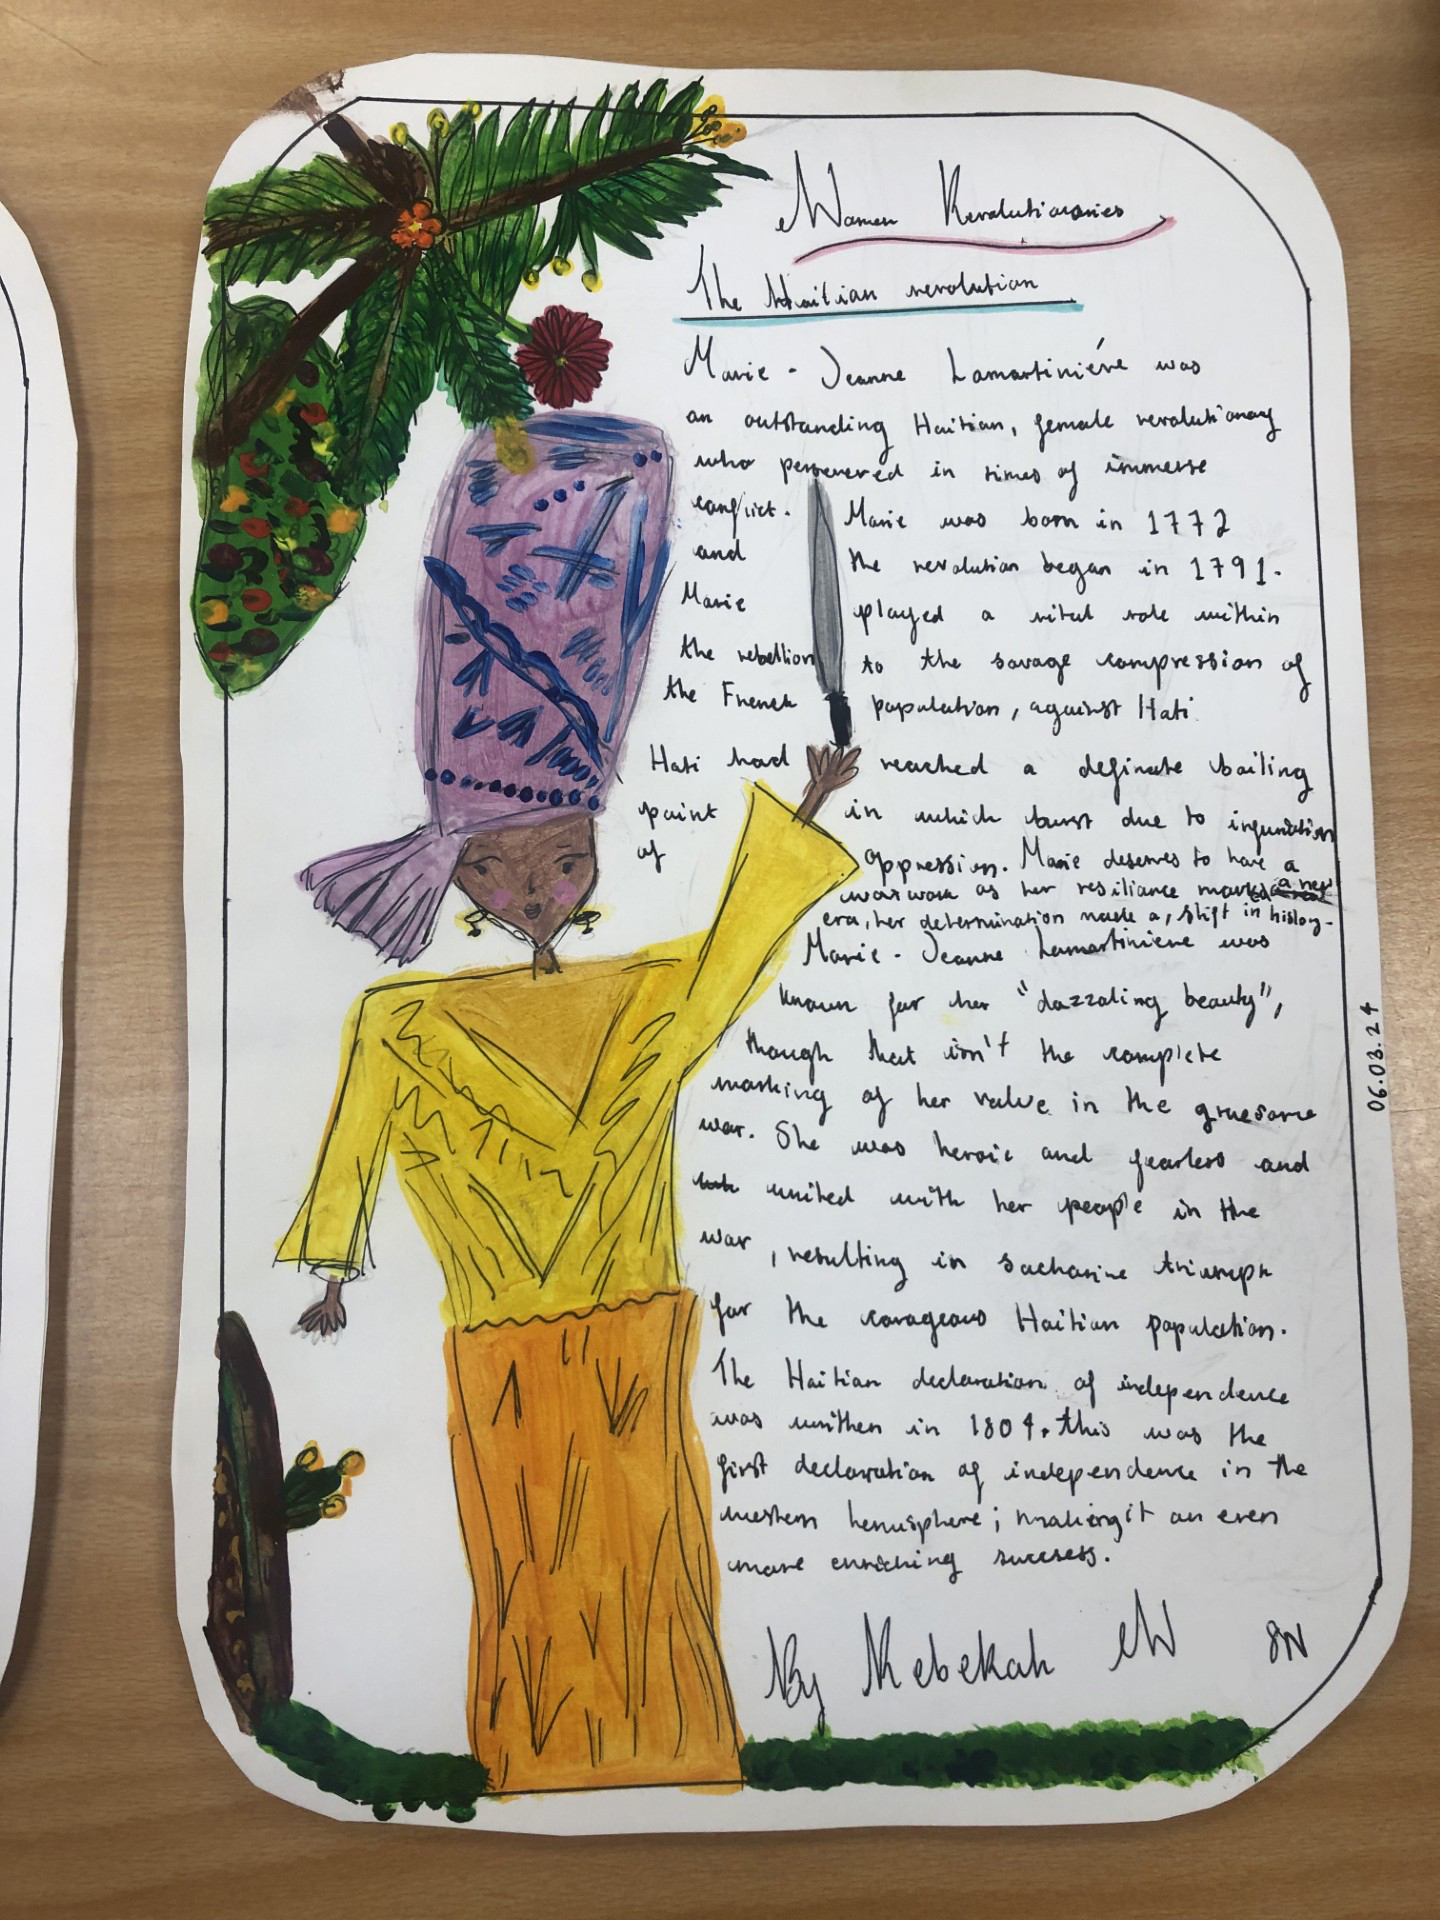 Women Revolutionaries
The Haitian revolution
Marie - Jeanne Lamartiniére was
an outstanding Haitian, female revolutionary
who persevered in times of immense
conflict. Marie was born in 1772
and the revolution began in 1791.
Marie played a vital role within
the rebellion to the savage compression of
the French population, against Hati
Hati had reached a definate boiling
point in which burst due to
of oppression. Marie deserves to have a
as her resiliance marked a new
era, her determination made a, shift in history.
Marie - Jeanne Lamartiniére was
known for her "dazzaling beauty",
though that isn't the complete
marking of her value in the gruesome
war. She was heroic and fearless and
united with her people in the
war, resulting in sacharine triumph
for the corageous Haitian population.
The Haitian declaration of independence
was written in 1804. this was the
first declaration of independence in the
western hemisphere; making it an even
more enriching success.
By Rebekah W 8N
06.03.24